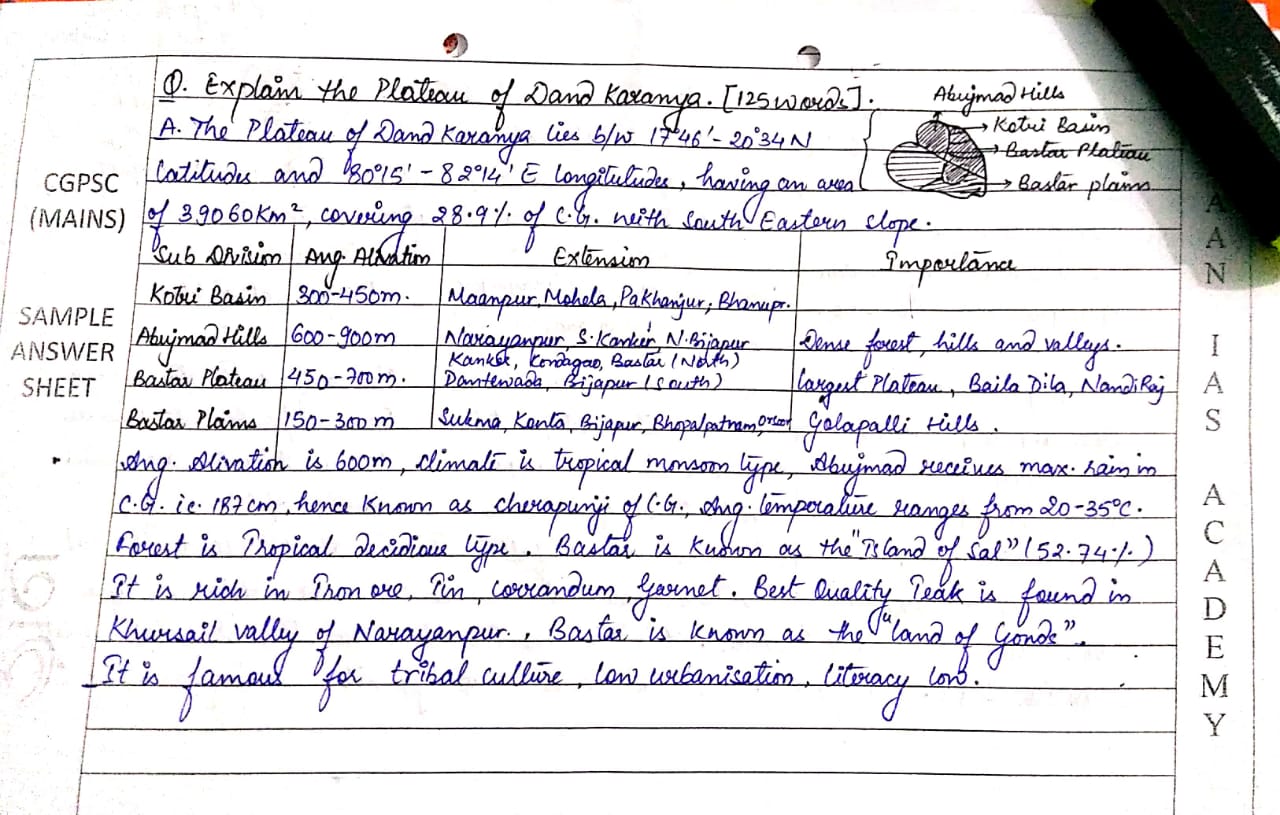 Q. Explain the Plateau of Dand Karanya. [125 words].
Abujmad Hills
Kotri Basin
Bastar Plateau
Bastar plains
A. The Plateau of Dand Karanya lies b/w 17°46' - 20°34 N
Latitudes and 80°15' - 82°14' E Longitutudes, having an area
of 39060 Km², covering 28.9% of C.G. with South Eastern slope.
Sub Division | Avg. Alivation | Extension | Importance
Kotri Basin | 300-450m. | Maanpur, Mohela, Pakhanjur, Bhanupr.
Abujmad Hills | 600-900m | Narayanpur, S. Kanker, N. Bijapur | Dense forest, hills and valleys.
Bastar Plateau | 450-700m. | Kanker, Kondagao, Bastar (North)
Dantewada, Bijapur (South) | largest Plateau, Baila Dila, Nandi Raj
Bastar Plains | 150-300m | Sukma, Konta, Bijapur, Bhopalpatnam, | Golapalli Hills.
Avg. Alivation is 600m, climate is tropical monsoon type, Abujmad receives max. rain in
C.G. i.e. 187 cm, hence Known as cherapunji of C.G., Avg. temperature ranges from 20-35°C.
Forest is Tropical decidious type. Bastar is Known as the "Island of Sal" (52.74%)
It is rich in Iron ore, Tin, corrandum, Garnet. Best Quality Teak is found in
Khursail valley of Narayanpur., Bastar is Known as the "land of Gonds".
It is famous for tribal culture, low urbanisation, literacy low.
CGPSC
(MAINS)
SAMPLE
ANSWER
SHEET
AAN IAS ACADEMY